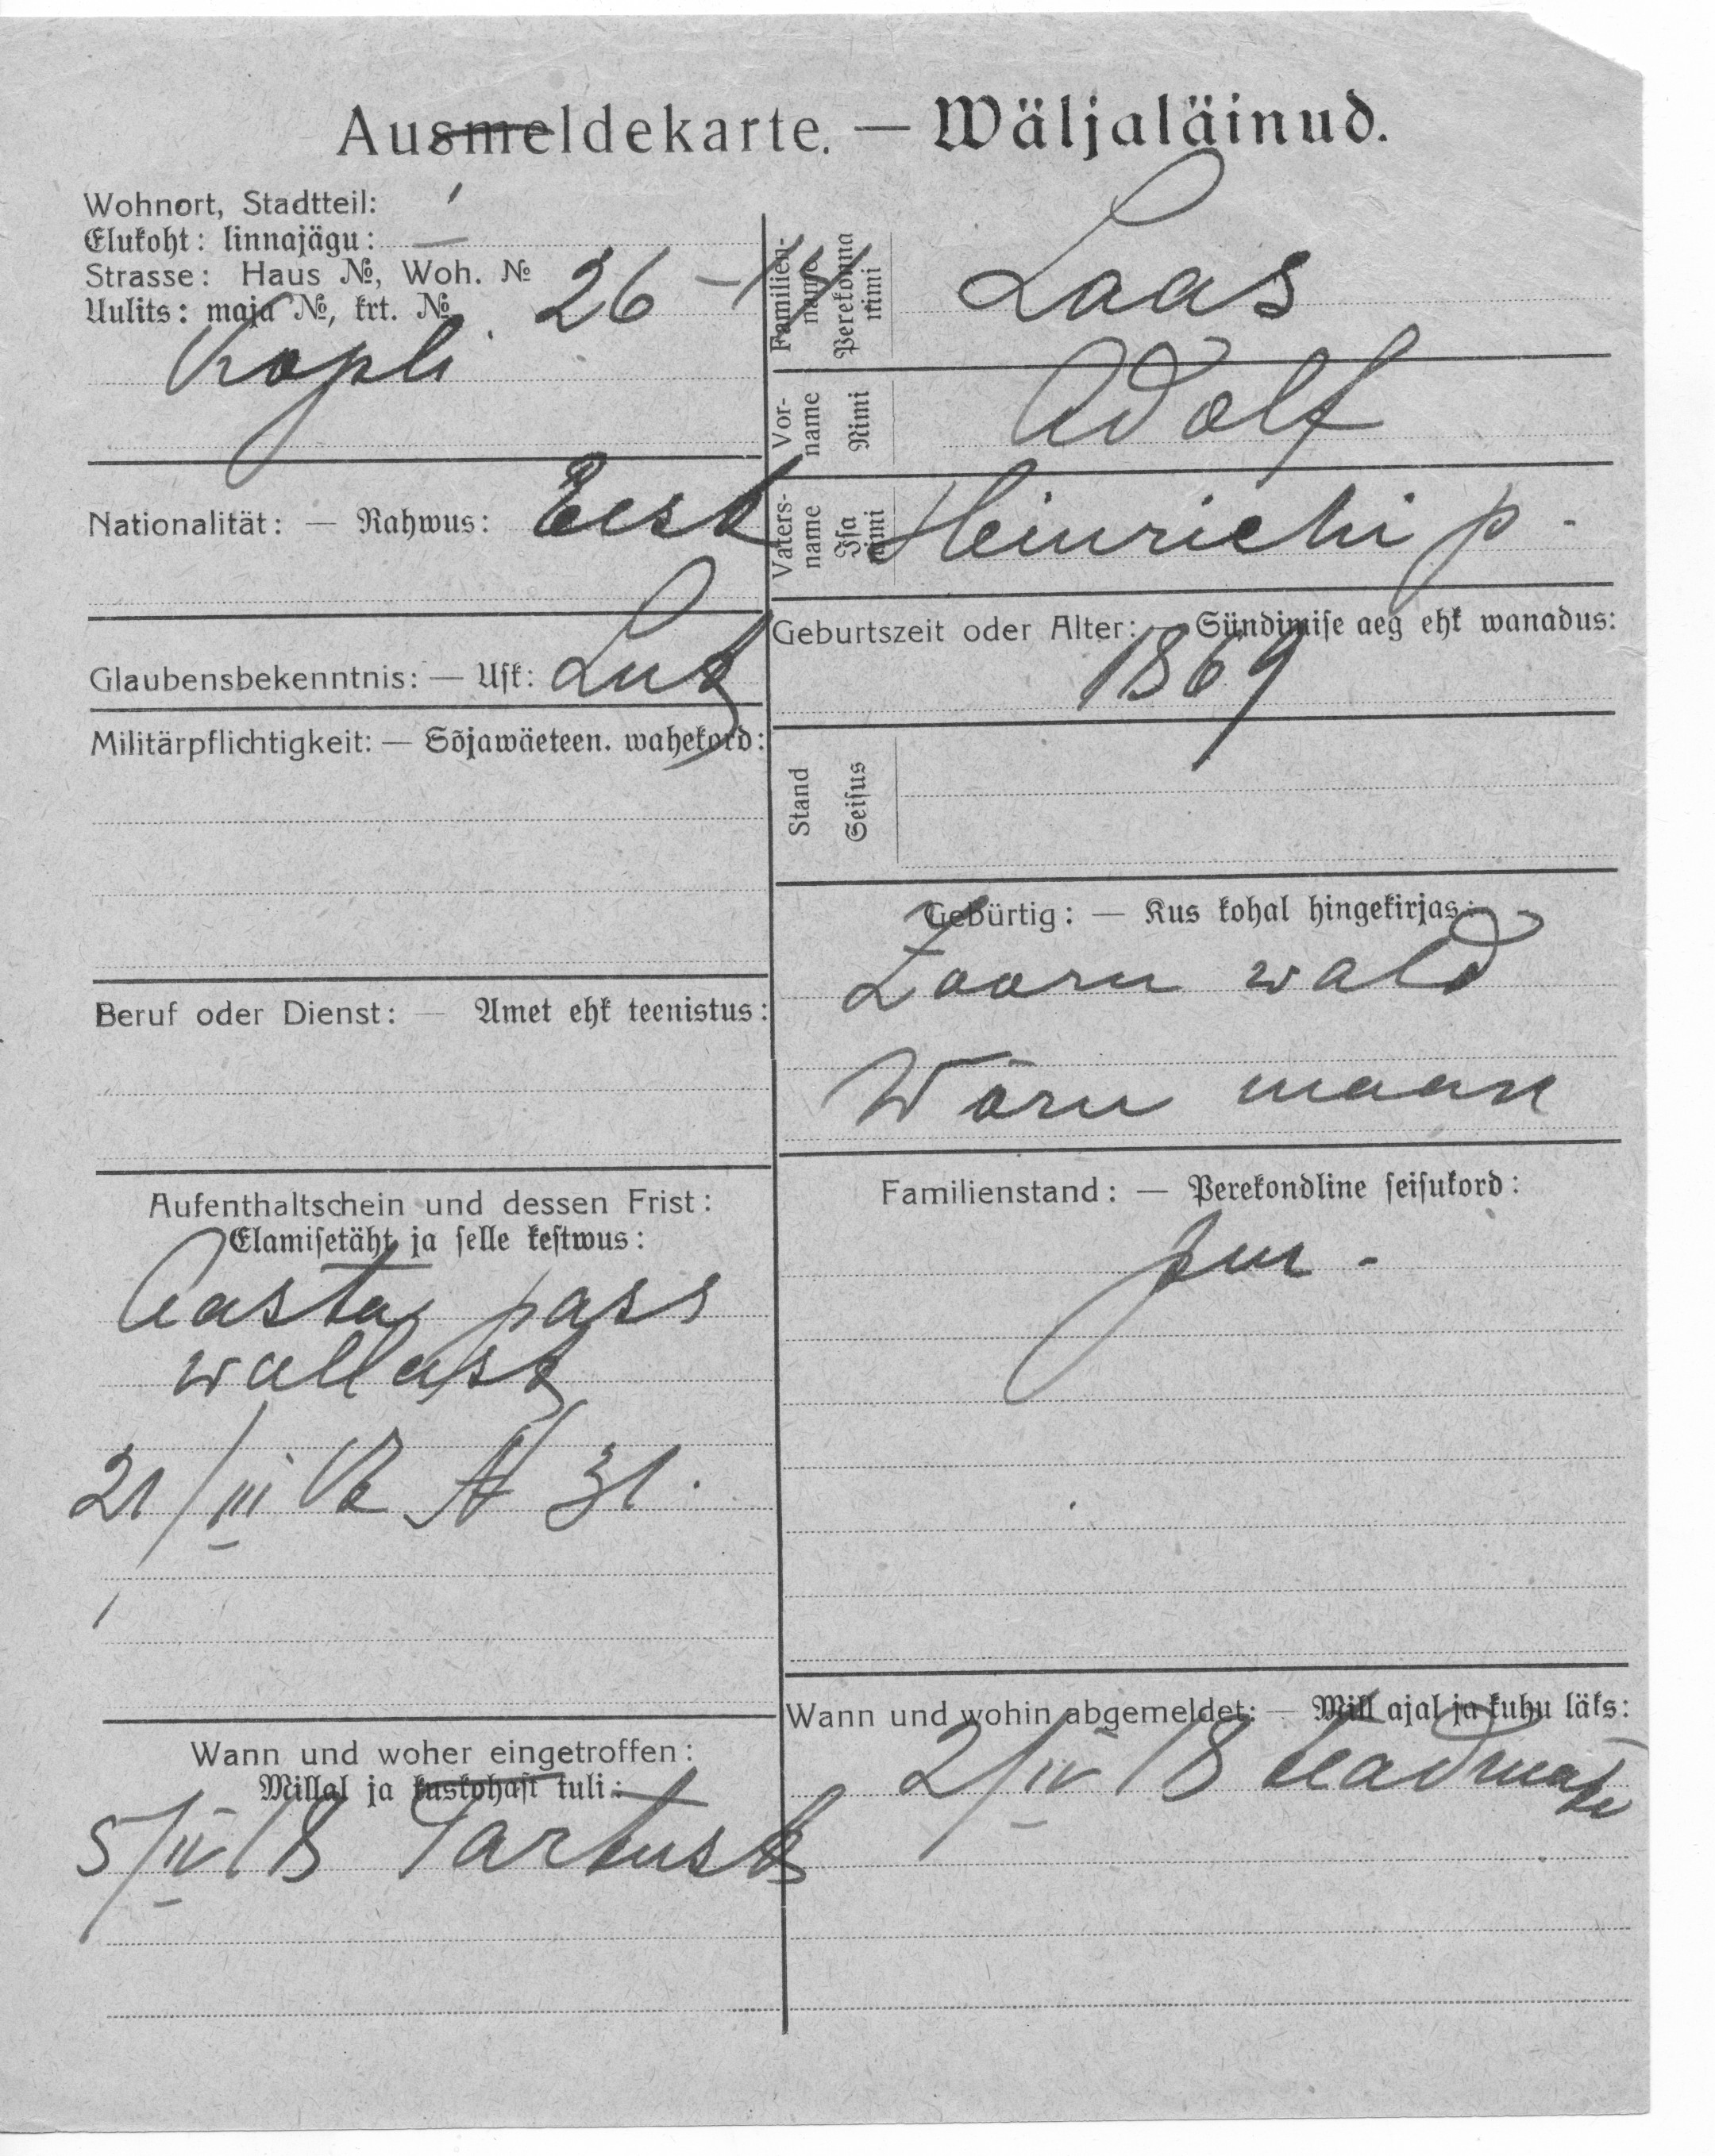 Ausmeldekarte. — Wäljaläinud.
Wohnort, Stadtteil:
Elukoht: linnajägu: —
Strasse: Haus №, Woh. №
Uulits: maja №, krt. № 26 - 14
Kopli
Nationalität: — Rahwus: Eest
Glaubensbekenntnis: — Usk: Lut
Militärpflichtigkeit: — Sõjawäeteen. wahekord:
Beruf oder Dienst: — Amet ehk teenistus:
Aufenthaltschein und dessen Frist:
Elamisetäht ja selle kestwus:
Aasta pass
wallast
21/III № 31.
Wann und woher eingetroffen:
Millal ja kuskohast tuli:
5/IV 18 Tartust
Familien-
name
Perekonna
nimi
Laas
Vor-
name
Nimi
Adolf
Vaters-
name
Isa
nimi
Heinrichi p.
Geburtszeit oder Alter: — Sündimise aeg ehk wanadus:
1869
Stand
Seisus
Gebürtig: — Kus kohal hingekirjas:
wald
Wõru maan
Familienstand: — Perekondline seisukord:
Wann und wohin abgemeldet: — Mill ajal ja kuhu läks:
2/IV 18 teadmata